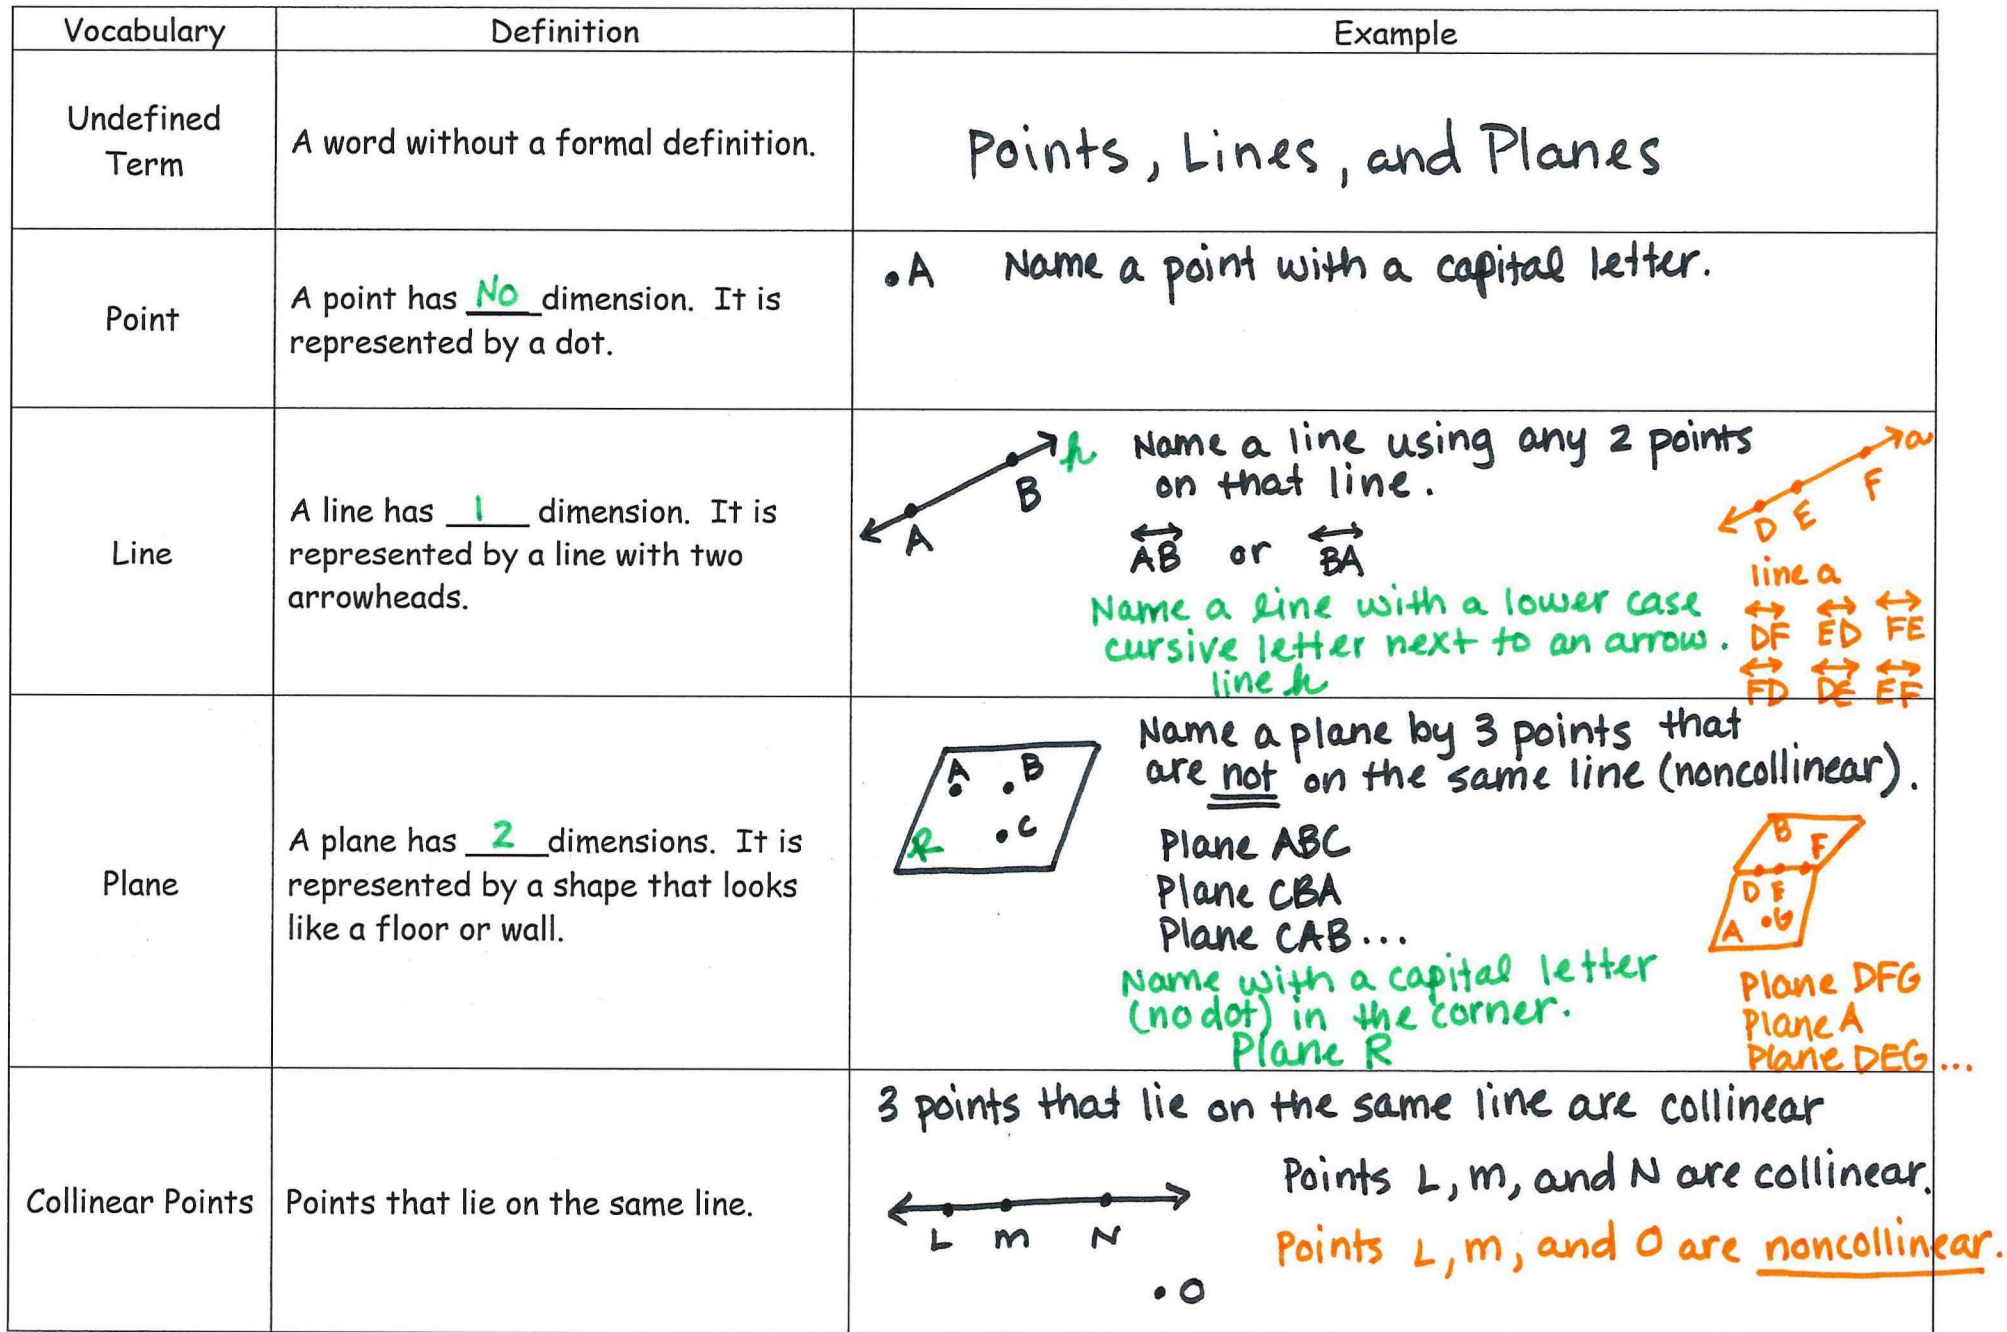 Vocabulary
Definition
Example
Undefined
Term
A word without a formal definition.
Points, Lines, and Planes
Point
A point has No dimension. It is
represented by a dot.
A
Name a point with a capital letter.
Line
A line has 1 dimension. It is
represented by a line with two
arrowheads.
h
B
A
Name a line using any 2 points
on that line.
AB or BA
Name a line with a lower case
cursive letter next to an arrow.
line h
a
F
E
D
line a
DF ED FE
FD DE EF
Plane
A plane has 2 dimensions. It is
represented by a shape that looks
like a floor or wall.
A B
C
R
Name a plane by 3 points that
are not on the same line (noncollinear).
Plane ABC
Plane CBA
Plane CAB...
Name with a capital letter
(no dot) in the corner.
Plane R
B
F
D E
G
A
Plane DFG
Plane A
Plane DEG...
Collinear Points
Points that lie on the same line.
3 points that lie on the same line are collinear
L m N
O
Points L, m, and N are collinear.
Points L, m, and O are noncollinear.